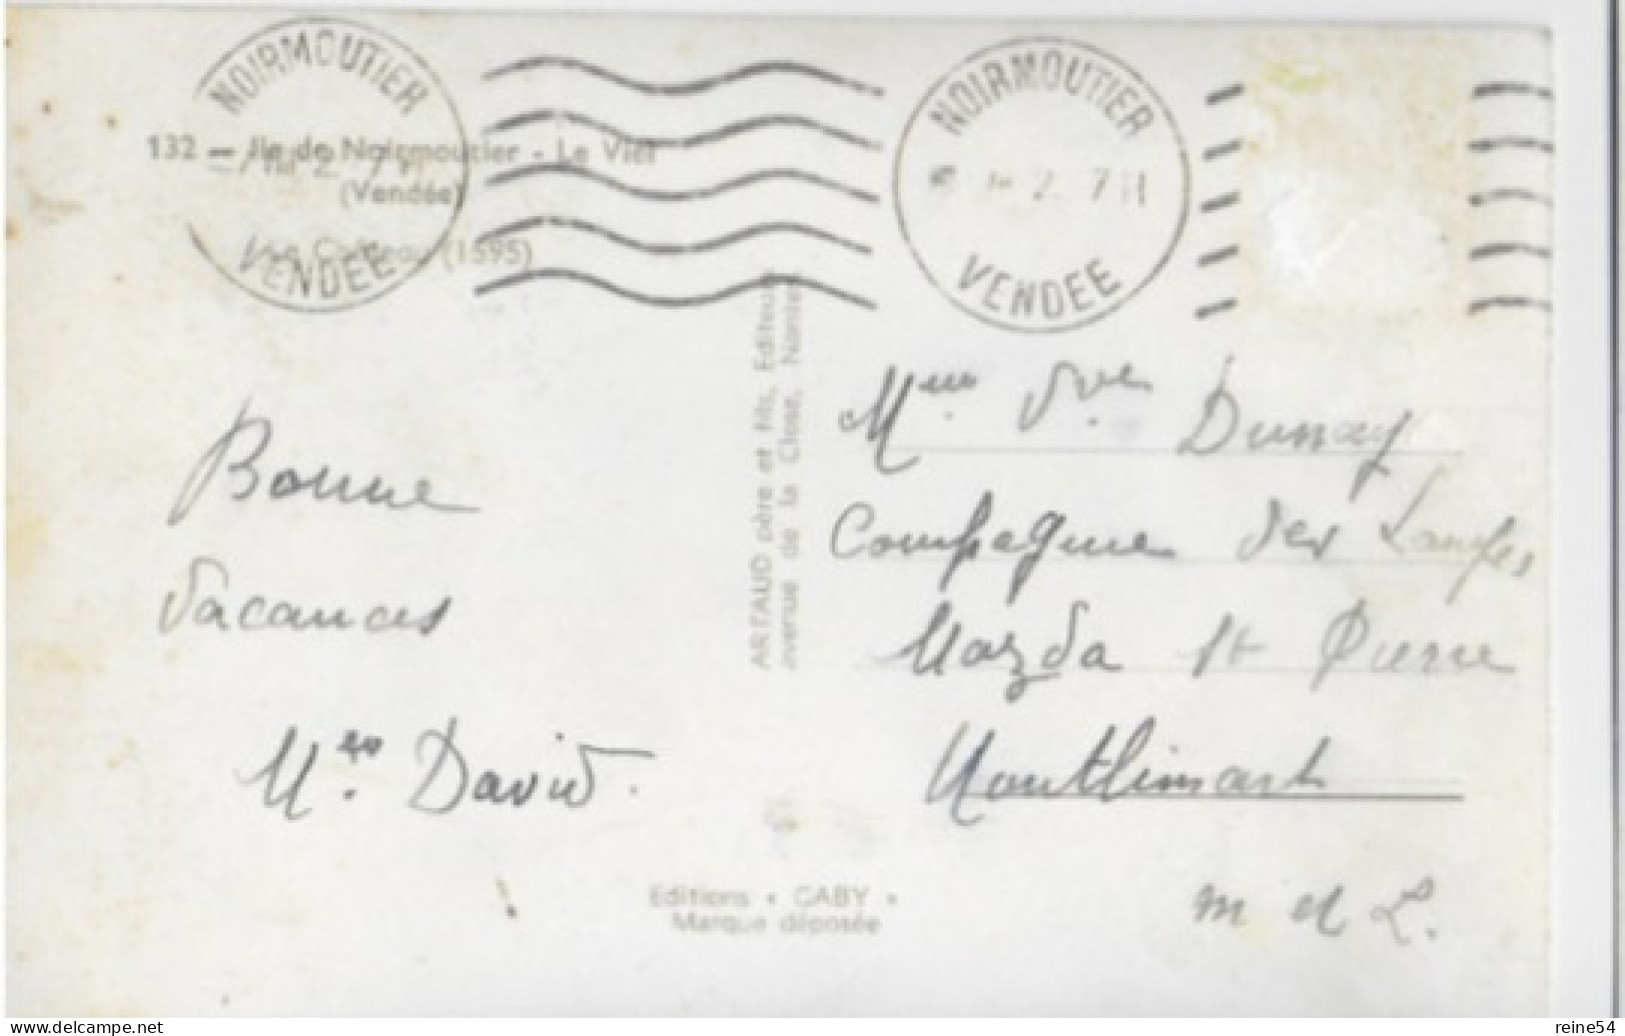 NOIRMOUTIER
VENDEE
NOIRMOUTIER
VENDEE
132 — Ile de Noirmoutier - Le Vieil
(Vendée)
Le Château (1595)
ARTAUD père et fils, Editeurs
avenue de la Close, Nantes
Bonne
Vacances
Mme David.
Mme Vve Dunay
Compagnie des Lampes
Mazda St Pierre
Montlimart
M et L.
Editions • GABY •
Marque déposée
reine54